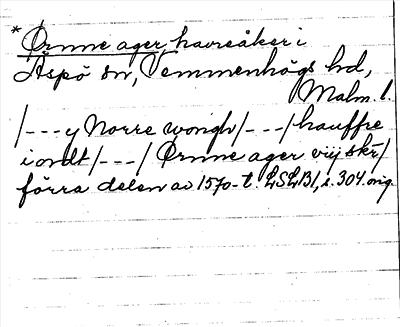 *Ørnne ager, havreåker i
Äspö sn, Vemmenhögs hd,
Malm. l.
/---y Norre wongh/---/hauffre
iordt/---/ Ørnne ager viij skr/
förra delen av 1570-t. LSLB1, s. 304. orig.